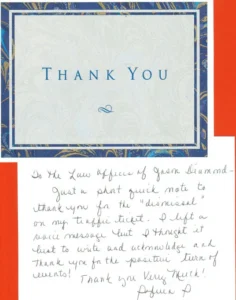 THANK YOU
To the Law Offices of Jason Diamond -
Just a short quick note to
thank you for the "dismissal"
on my traffic ticket. I left a
voice message but I thought it
best to write and acknowledge and
Thank you for the positive turn of
events!
Thank you Very Much!